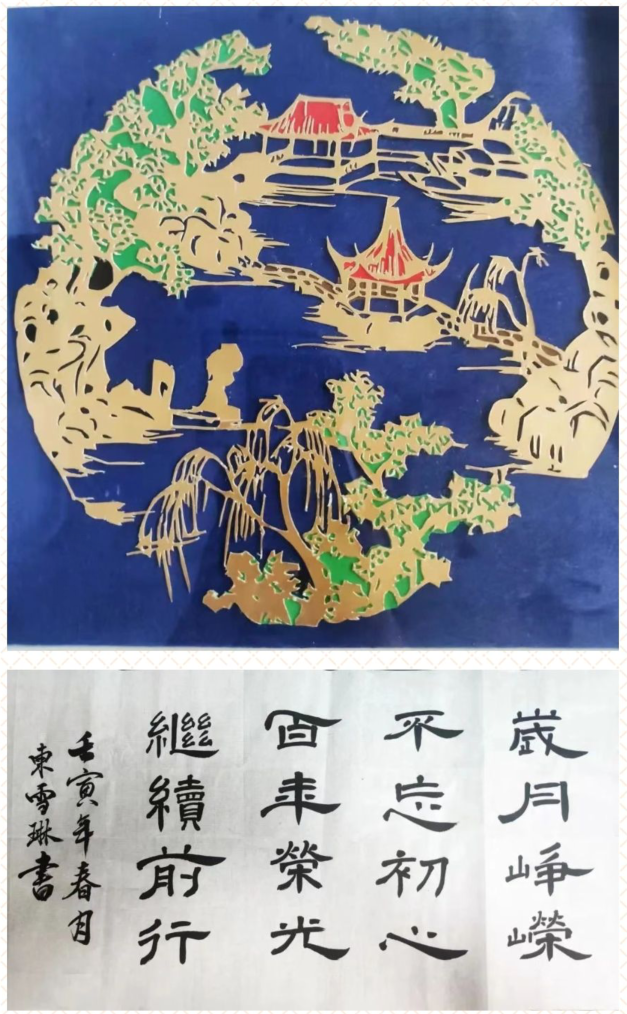 歲月崢嶸
不忘初心
百年榮光
繼續前行
壬寅年春月
東雪琳書